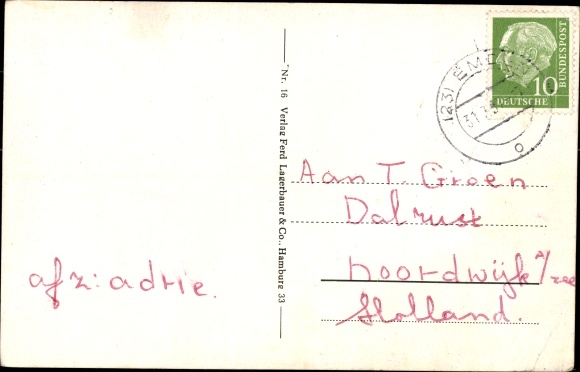 10
BUNDESPOST
DEUTSCHE
(23) EMDEN
31.3.5
o
Nr. 16 Verlag Ferd Lagerbauer & Co., Hamburg 33
Aan T. Groen
Dalrust
Noordwijk a/zee
Holland.
afz: adrie.